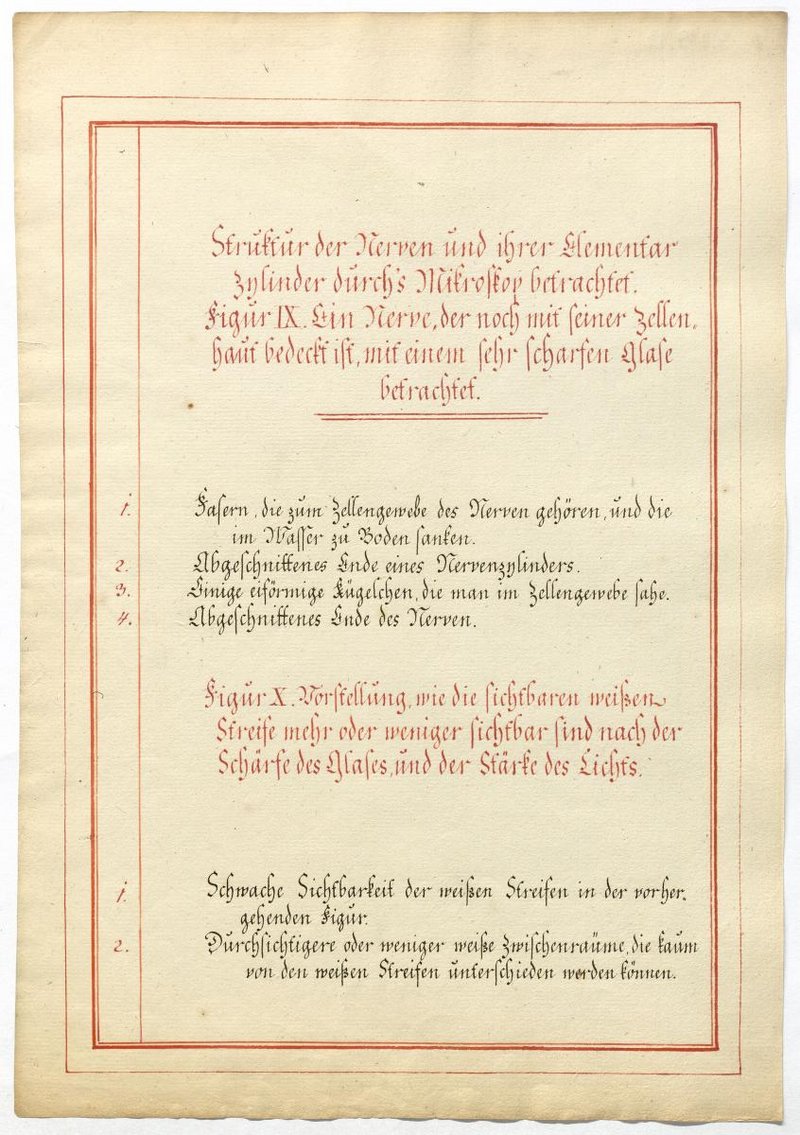 Struktur der Nerven und ihrer Elementar
Zylinder durch's Mikroskop betrachtet.
Figur IX. Ein Nerve, der noch mit seiner Zellen-
haut bedeckt ist, mit einem sehr scharfen Glase
betrachtet.
1. Fasern, die zum Zellengewebe des Nerven gehören, und die
im Wasser zu Boden sanken.
2. Abgeschnittenes Ende eines Nervenzylinders.
3. Einige eiförmige Kügelchen, die man im Zellengewebe sahe.
4. Abgeschnittenes Ende des Nerven.
Figur X. Vorstellung, wie die sichtbaren weißen
Streife mehr oder weniger sichtbar sind nach der
Schärfe des Glases, und der Stärke des Lichts.
1. Schwache Sichtbarkeit der weißen Streifen in der vorher-
gehenden Figur.
2. Durchsichtigere oder weniger weiße Zwischenräume, die kaum
von den weißen Streifen unterschieden werden können.